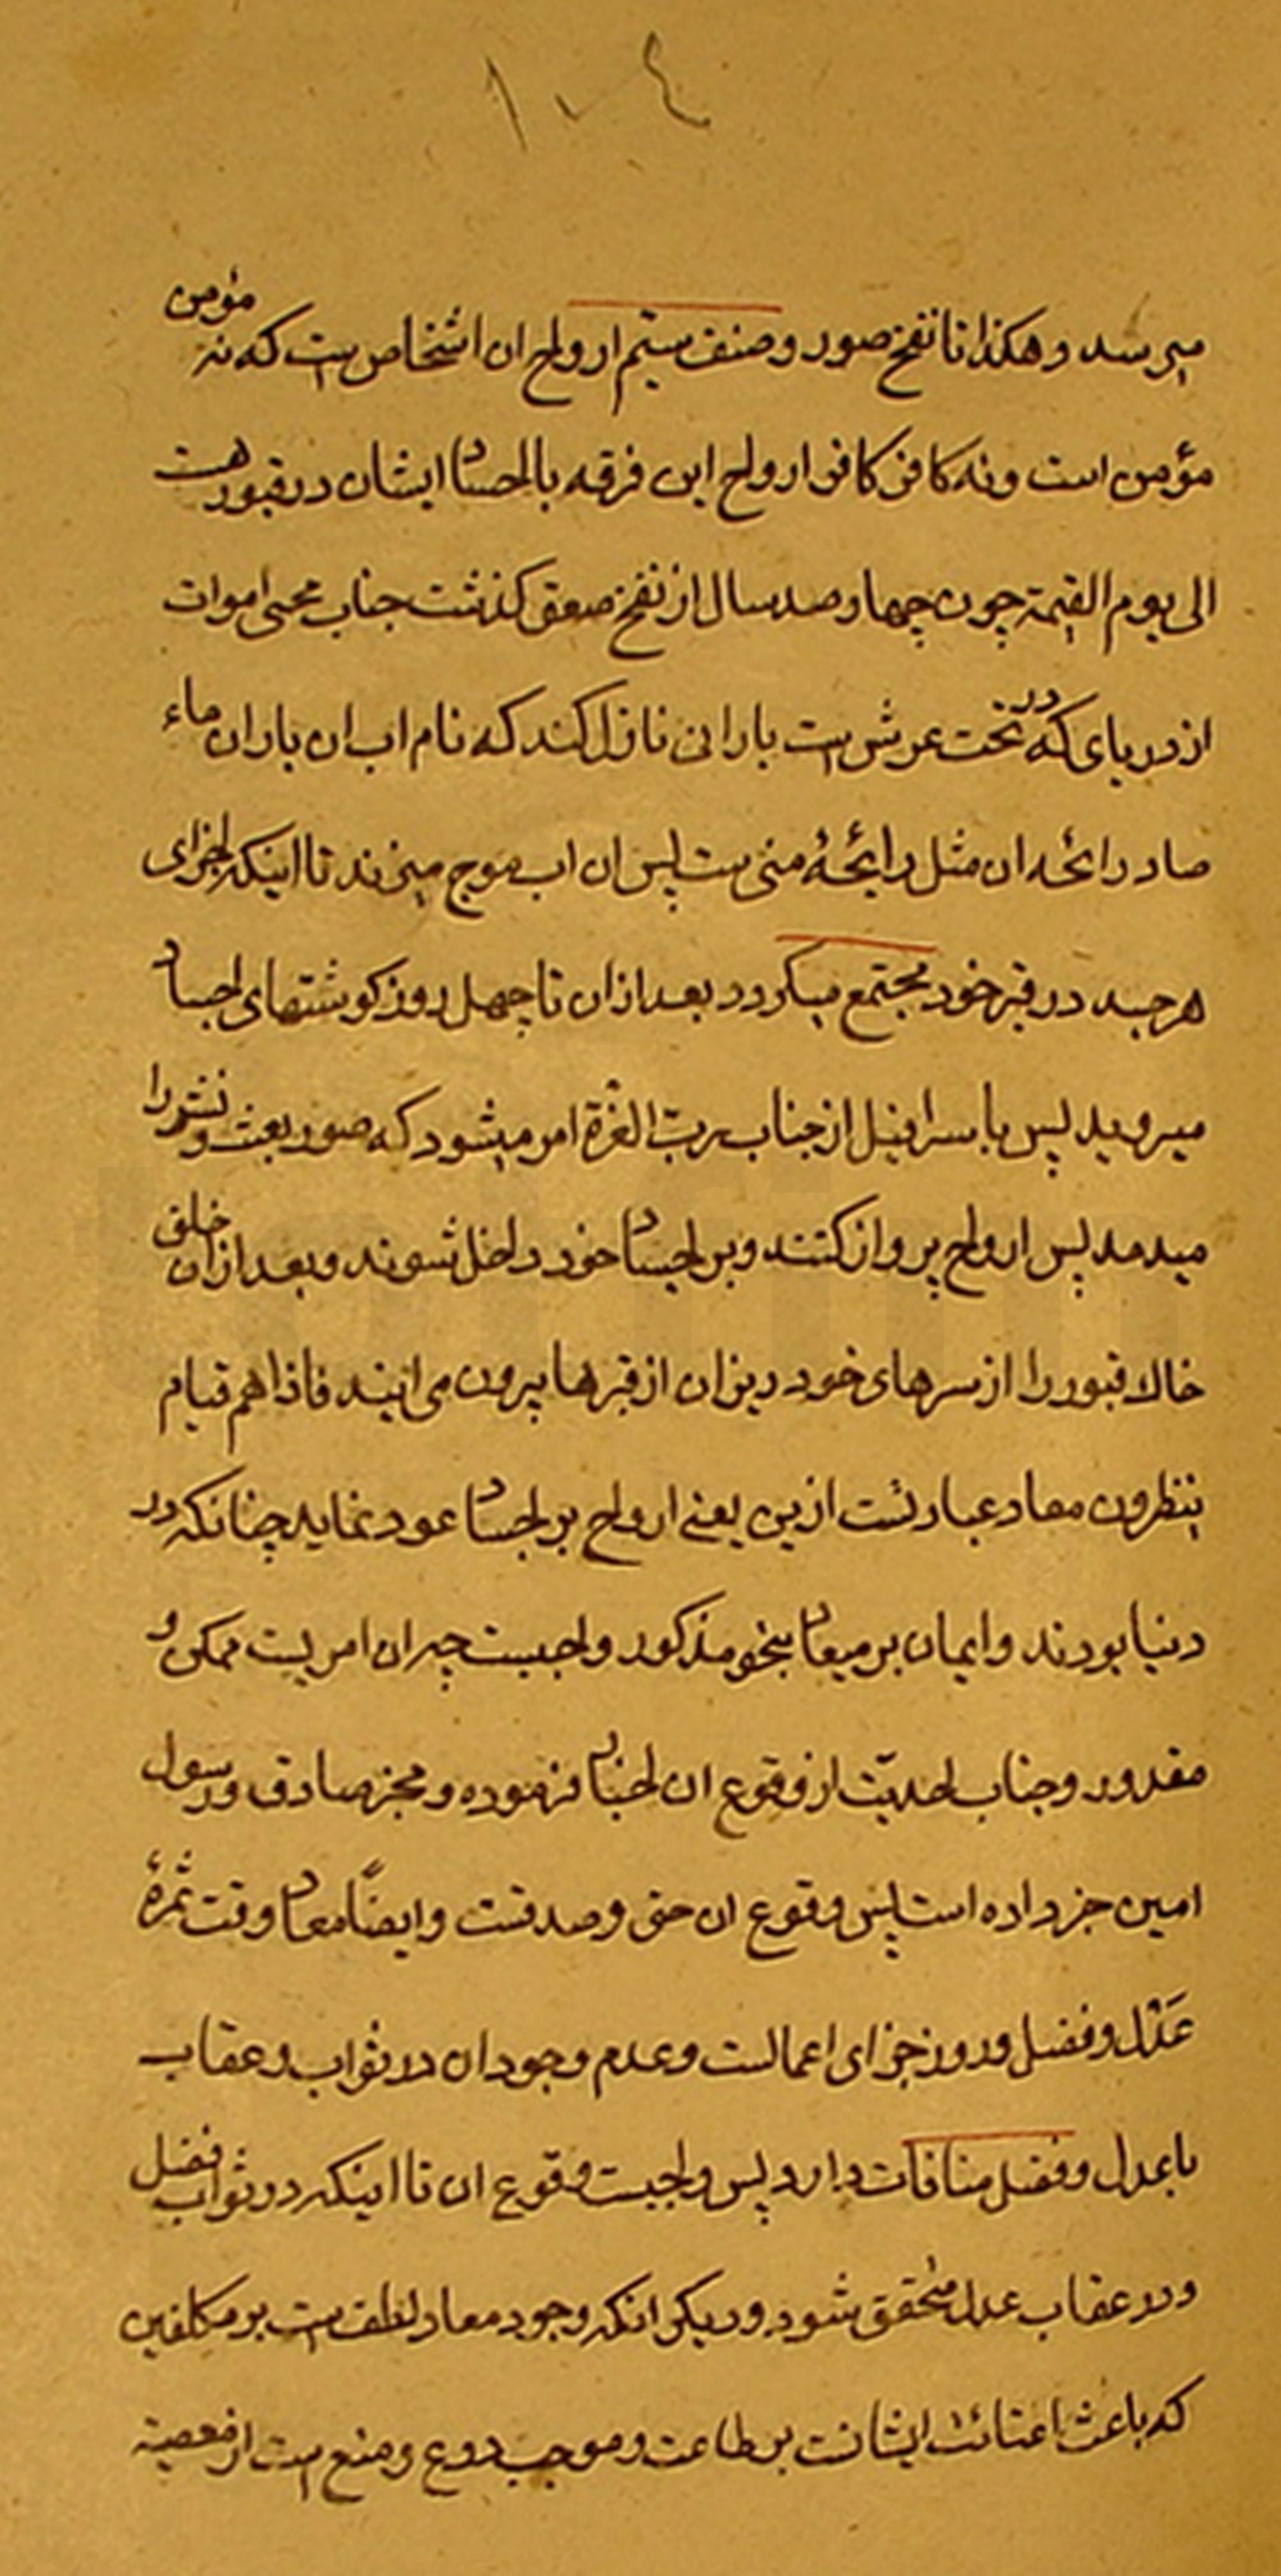 ۱۰٤
میرسد و هکذا تا نفخ صور و صنف سیّم ارواح ان اشخاص ست که نه مؤمن
مؤمن است و نه کافر کافر ارواح این فرقه با اجساد ایشان در قبور هست
الی یوم القیمة چون چهار صد سال از نفخ صعق کذشت جناب محیی اموات
از دریای که در تحت عرش ست بارانی نازل کند که نام اب ان باران ماء
صاد رائحه ان مثل رایحهٔ منی ست پس ان اب موج میزند تا اینکه اجزای
هر جسد در قبر خود مجتمع میکردد بعد از ان تا چهل روز کوشتهای اجساد
میروید پس باسرافیل از جناب ربّ العزة امر میشود که صور بعث و نشر را
میدمد پس ارواح پرواز کنند و بر اجساد خود داخل شوند و بعد از ان خلق
خاک قبور را از سرهای خود ریزان از قبرها بیرون می ایند فاذا هم قیام
ینظرون معاد عبارتست ازین یعنی ارواح بر اجساد عود نماید چنانکه در
دنیا بودند و ایمان بر میعاد بنحو مذکور واجبست چه ان امریست ممکن و
مقدور و جناب احدیّت از وقوع ان اخبار فرموده و مخبر صادق و رسول
امین خبر داده است پس وقوع ان حق و صدقست و ایضاً معاد وقت ثمرهٔ
عَدْل و فضل و روز جزای اعمالست و عدم وجود ان در ثواب و عقاب
با عدل و فضل منافات دارد پس واجبست وقوع ان تا اینکه در ثواب فضل
و در عقاب عدل متحقق شود و دیکر انکه وجود معاد لطف ست بر مکلفین
که باعث ایشانست بر طاعت و موجب ردع و منع ست از معصیة